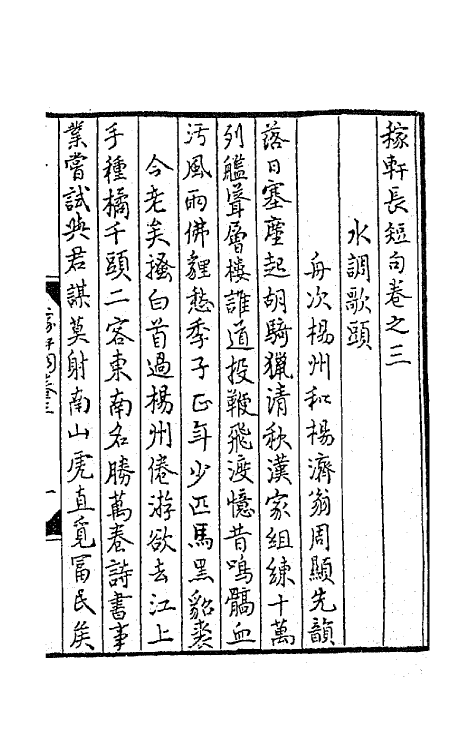 稼軒長短句卷之三
水調歌頭
舟次楊州和楊濟翁周顯先韻
落日塞塵起胡騎獵清秋漢家組練十萬
列艦聳層樓誰道投鞭飛渡憶昔鳴髇血
汚風雨佛貍愁季子正年少匹馬黑貂裘
今老矣搔白首過楊州倦游欲去江上
手種橘千頭二客東南名勝萬卷詩書事
業嘗試與君謀莫射南山虎直覓富民矦